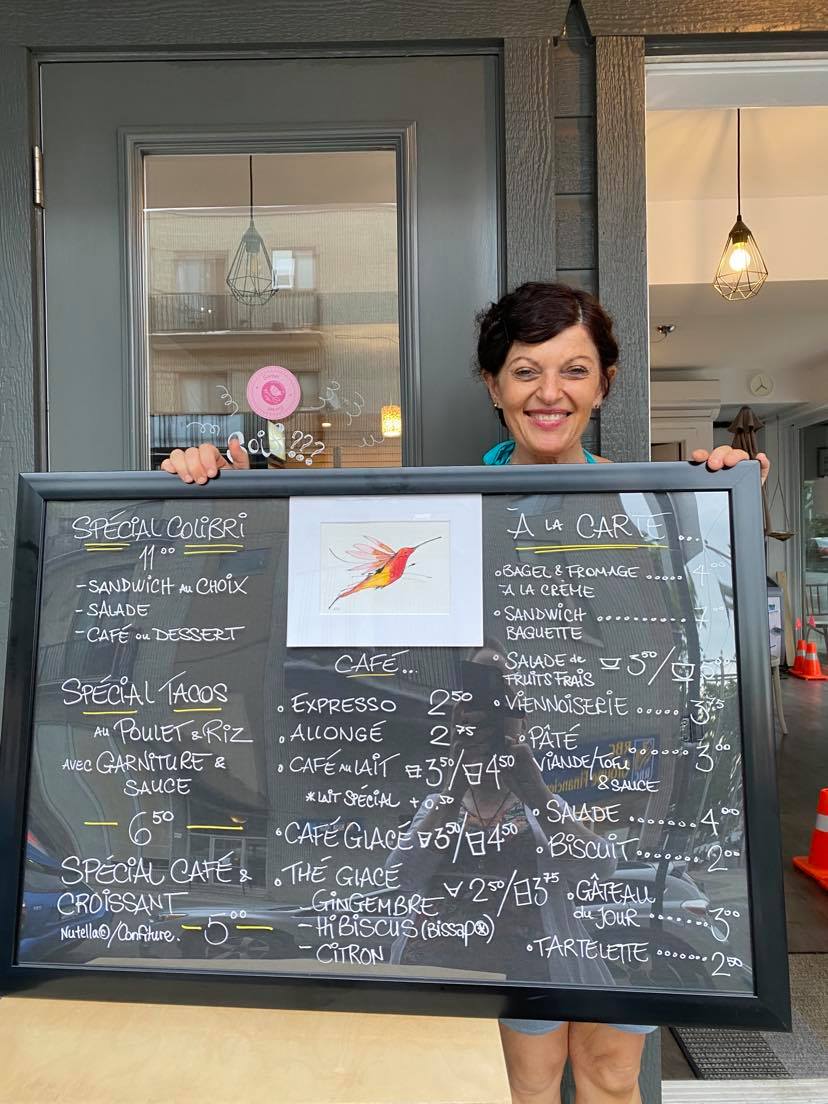 Soif ???
SPÉCIAL COLIBRI
11⁰⁰
- SANDWICH AU CHOIX
- SALADE
- CAFÉ OU DESSERT
SPÉCIAL TACOS
AU POULET & RIZ
AVEC GARNITURE &
SAUCE
6⁵⁰
SPÉCIAL CAFÉ &
CROISSANT
Nutella©/Confiture. 5⁰⁰
CAFÉ...
EXPRESSO 2⁵⁰
ALLONGÉ 2⁷⁵
CAFÉ AU LAIT 3⁵⁰/4⁵⁰
*LAIT SPECIAL +0,50
CAFÉ GLACÉ 3⁵⁰/4⁵⁰
THÉ GLACÉ
- GINGEMBRE 2⁵⁰/3⁷⁵
- HIBISCUS (BISSAP)
- CITRON
À LA CARTE...
BAGEL & FROMAGE ..... 4
À LA CRÈME
SANDWICH .......... 7
BAGUETTE
SALADE de 3⁵⁰/5
FRUITS FRAIS
VIENNOISERIE ..... 3⁷⁵
PÂTÉ
VIANDE/TOFU ........ 3⁰⁰
& SAUCE
SALADE ....... 4⁰⁰
BISCUIT ....... 2⁰⁰
GÂTEAU
du JOUR ....... 3⁰⁰
TARTELETTE ...... 2⁵⁰
RBC
Groupe Financier